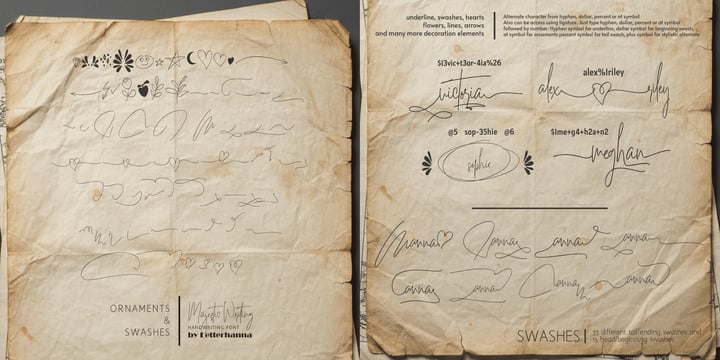 ORNAMENTS
&
SWASHES
Majestic Writing
HANDWRITING FONT
by Letterhanna
underline, swashes, hearts
flowers, lines, arrows
and many more decoration elements
Alternate character from hyphen, dollar, percent or at symbol
Also can be access using ligature. Just type hyphen, dollar, percent or at symbol
followed by number. Hyphen symbol for underline, dollar symbol for beginning swash,
at symbol for ornaments percent symbol for tail swash, plus symbol for stylistic alternate
$13vic+t3or-4ia%26
victoria
alex%1riley
alex riley
@5 sop-35hie @6
sophie
$1me+g4+h2a+n2
meghan
SWASHES
15 head/beginning swashes